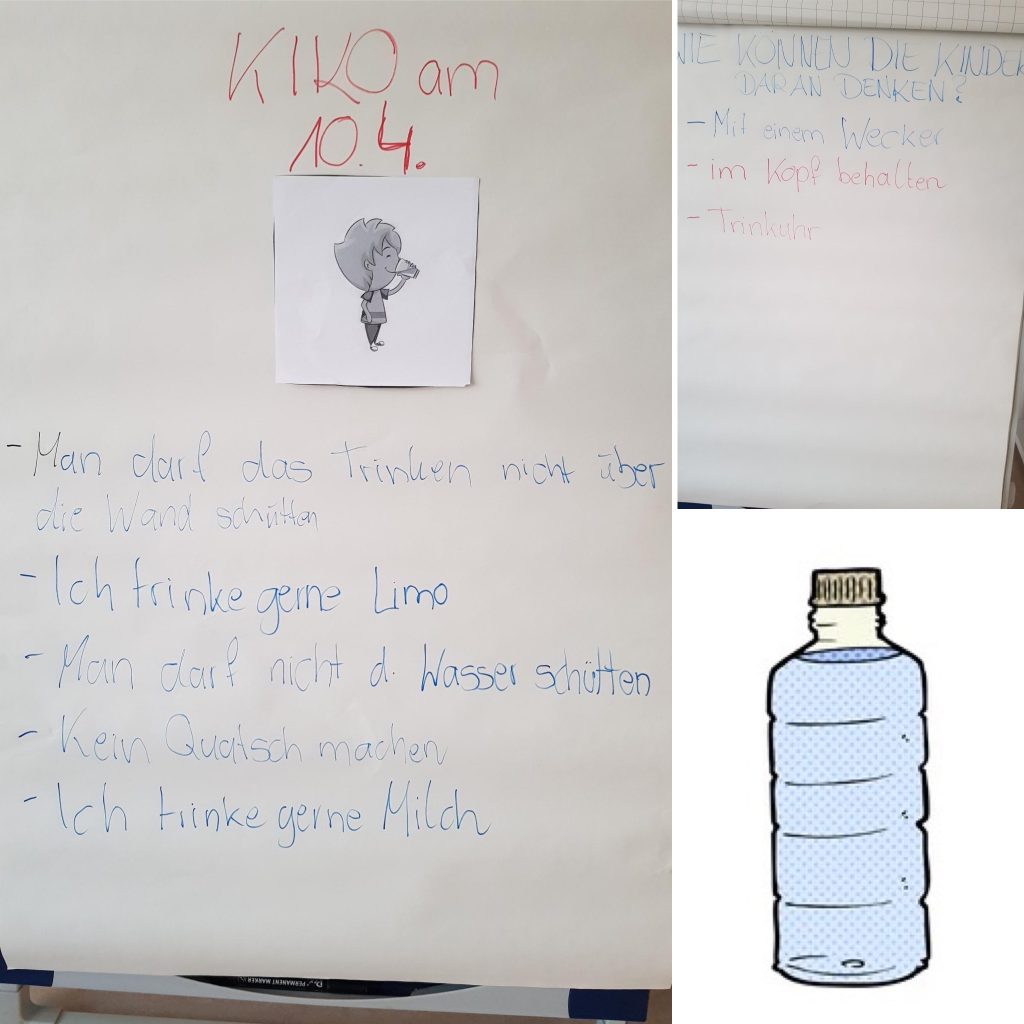 KIKO am
10.4.
- Man darf das Trinken nicht über
die Wand schütten
- Ich trinke gerne Limo
- Man darf nicht d. Wasser schütten
- Kein Quatsch machen
- Ich trinke gerne Milch
PERMANENT MARKER
WIE KÖNNEN DIE KINDER
DARAN DENKEN?
- Mit einem Wecker
- im Kopf behalten
- Trinkuhr